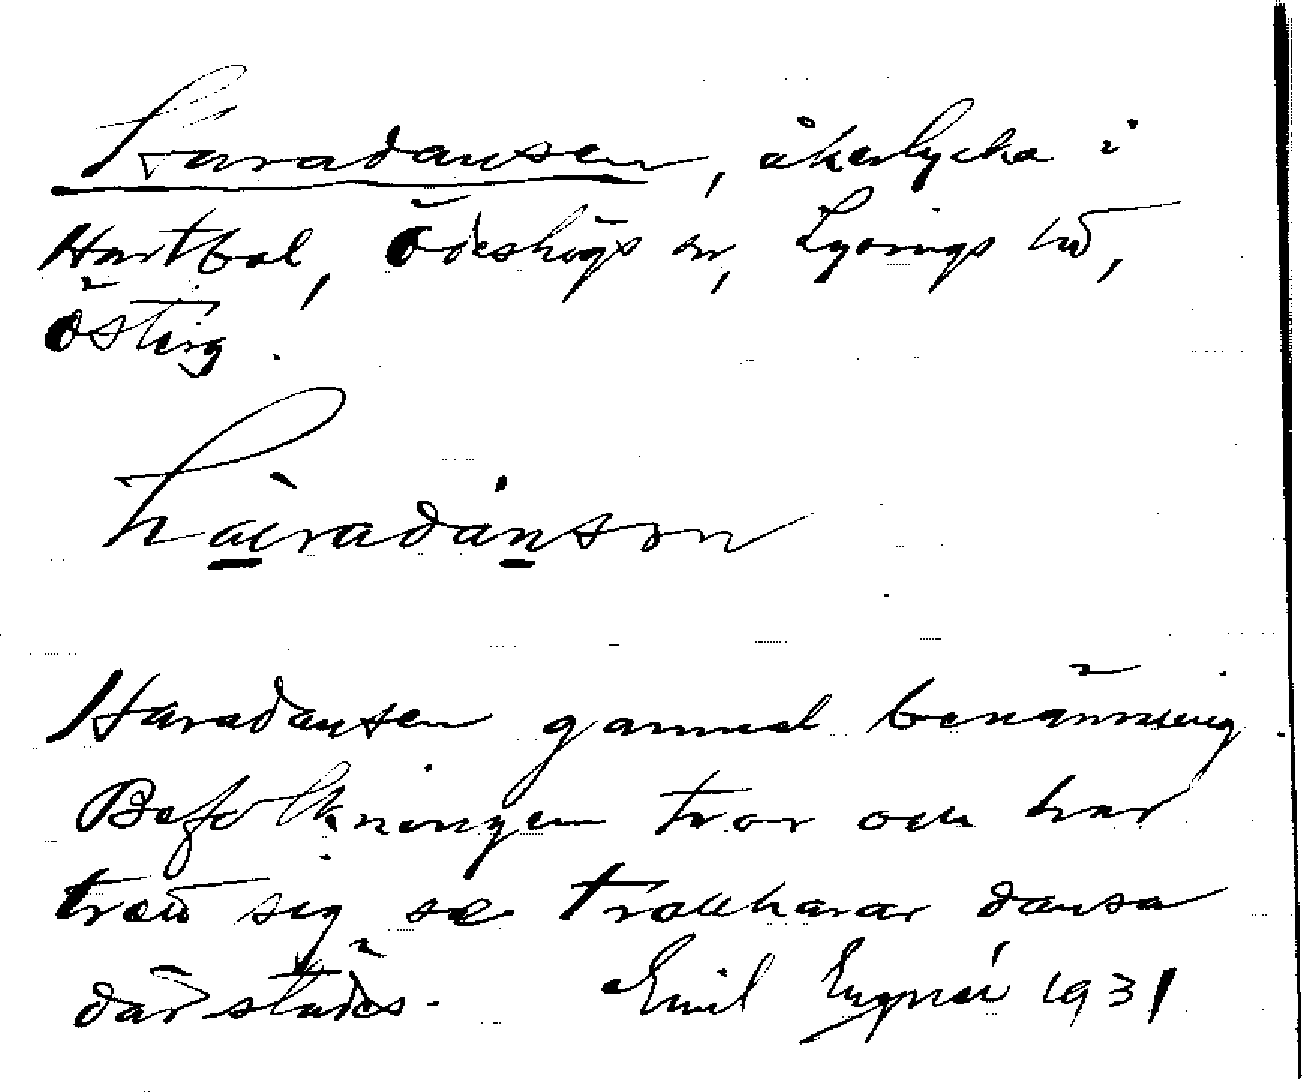 Haradansen, åkerlycka i
Hartbol, Ödeshögs sn, Lysings hd,
Österg.
Haradansen gammal benämning.
Befolkningen tror och har
trott sig se trollharar dansa
därstädes. Emil 1931